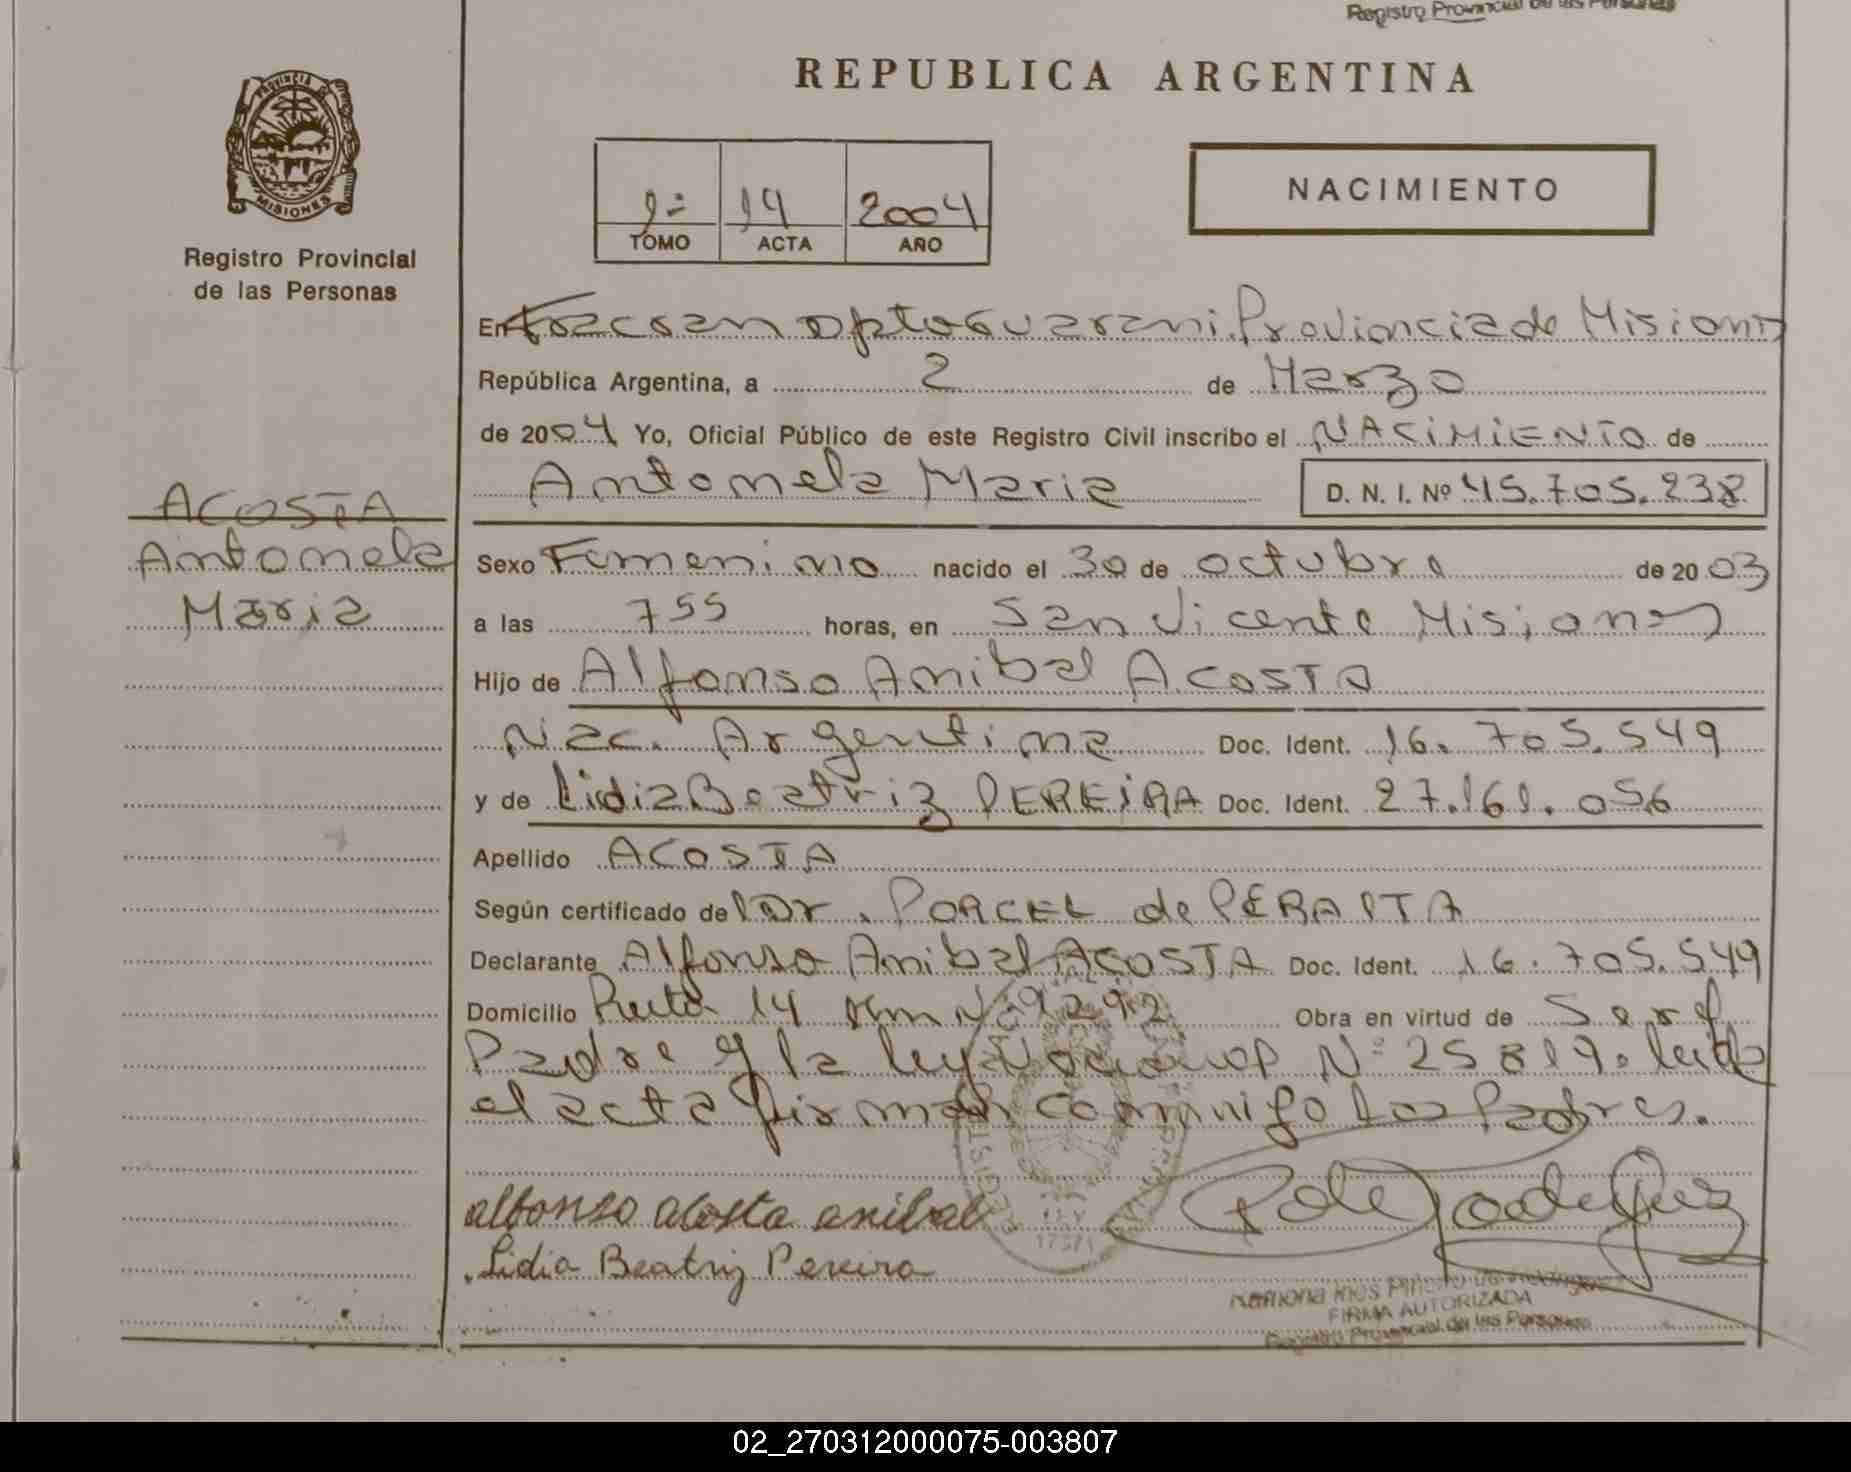 Registro Provincial de las Personas
REPUBLICA ARGENTINA
PROVINCIA DE
MISIONES
Registro Provincial
de las Personas
1º 14 2004
TOMO ACTA AÑO
NACIMIENTO
En Fracran Dpto Guarani. Provincia de Misiones
República Argentina, a 2 de Marzo
de 2004 Yo, Oficial Público de este Registro Civil inscribo el NACIMIENTO de
Antonela Maria D. N. I. Nº 45.705.238
ACOSTA
Antonela
Maria
Sexo Femenino nacido el 30 de octubre de 2003
a las 755 horas, en San Vicente Misiones
Hijo de Alfonso Anibal ACOSTA
Nac. Argentina Doc. Ident. 16.705.549
y de Lidia Beatriz PEREIRA Doc. Ident. 27.161.056
Apellido ACOSTA
Según certificado de Dr. PORCEL de PERALTA
Declarante Alfonso Anibal ACOSTA Doc. Ident. 16.705.549
Domicilio Ruta 14 Km Nº 1292 Obra en virtud de Ser el
Padre y la ley Nacional Nº 25819. leida
el acta firman conmigo los Padres.
alfonso acosta anibal
Lidia Beatriz Pereira
17371
FIRMA AUTORIZADA
Registro Provincial de las Personas
02_270312000075-003807